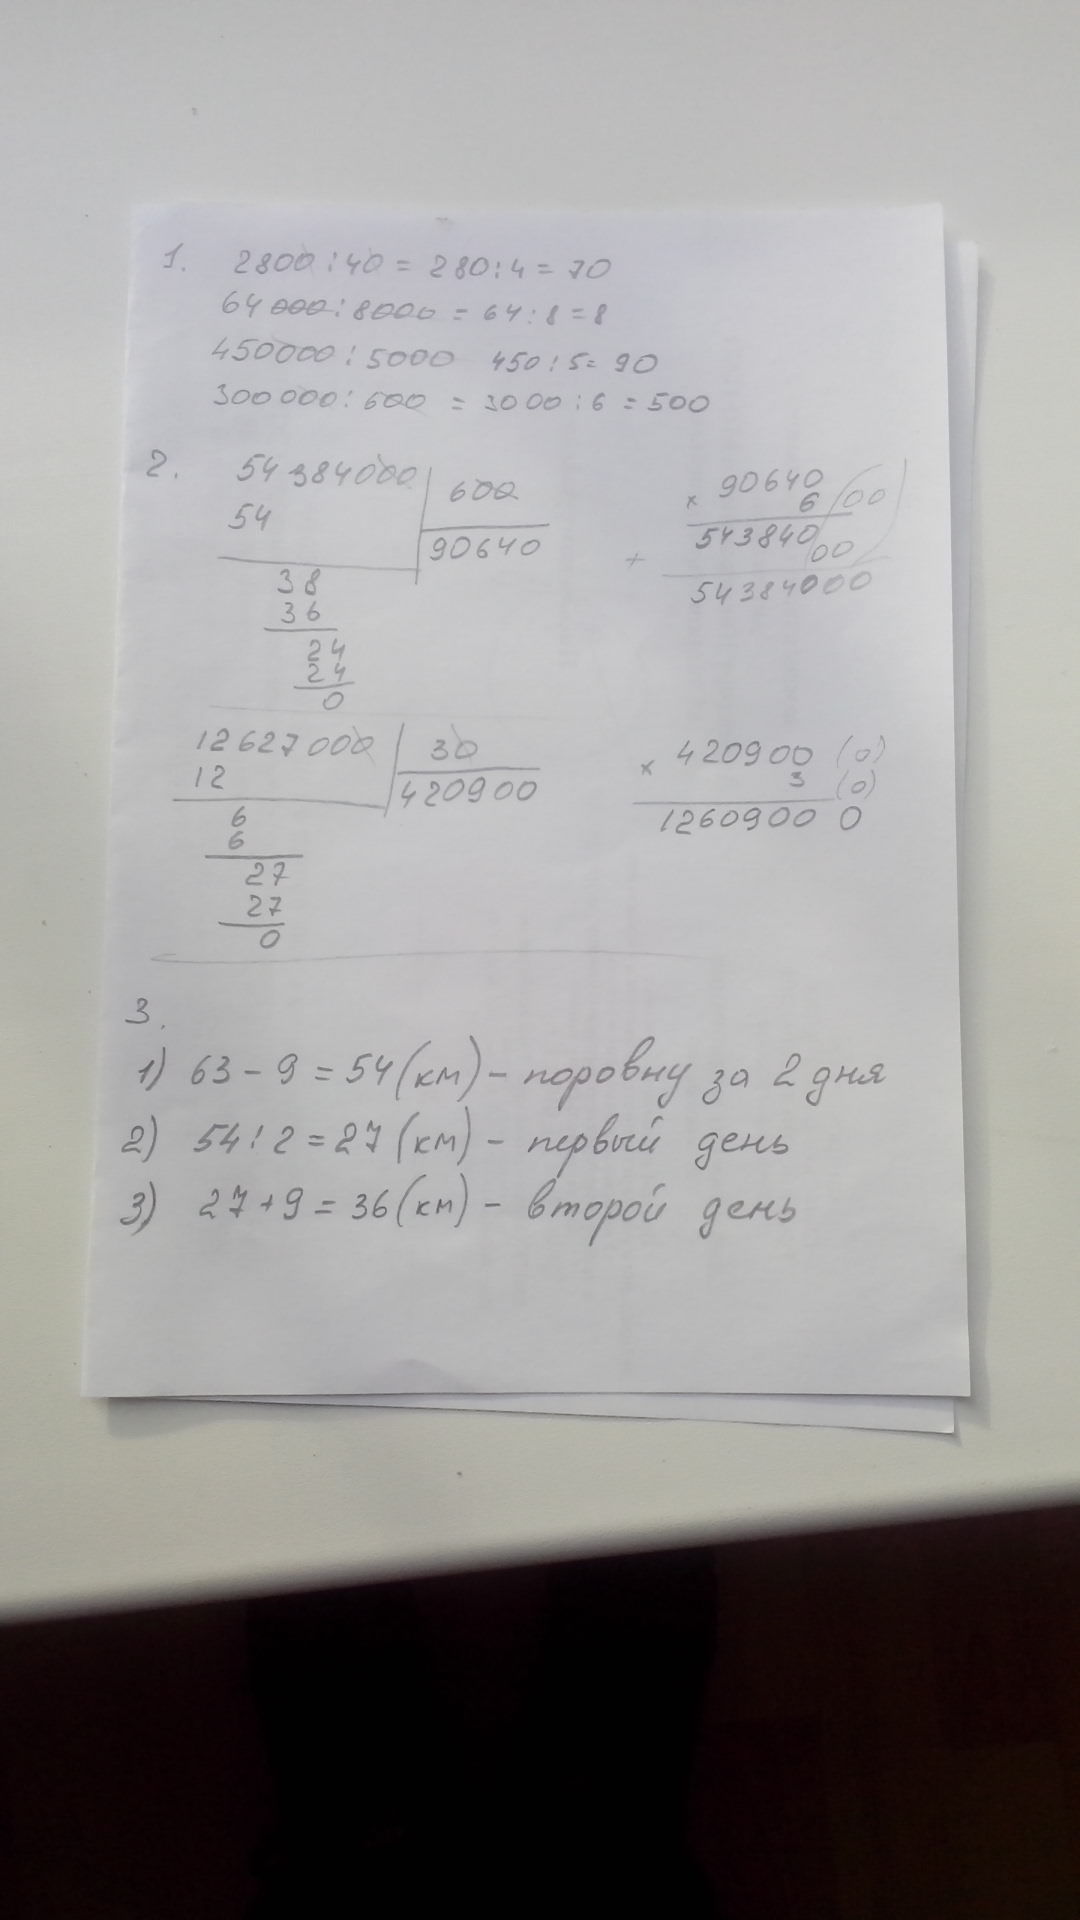 1. 2800 : 40 = 280 : 4 = 70
64000 : 8000 = 64 : 8 = 8
450000 : 5000 450 : 5 = 90
300000 : 600 = 3000 : 6 = 500
2. 54384000 600
54 90640
38
36
24
24
0
× 90640
6 00
543840
+ 00
54384000
12627000 30
12 420900
6
6
27
27
0
× 420900 (0)
3 (0)
1260900 0
3.
1) 63 - 9 = 54 (км) - поровну за 2 дня
2) 54 : 2 = 27 (км) - первый день
3) 27 + 9 = 36 (км) - второй день